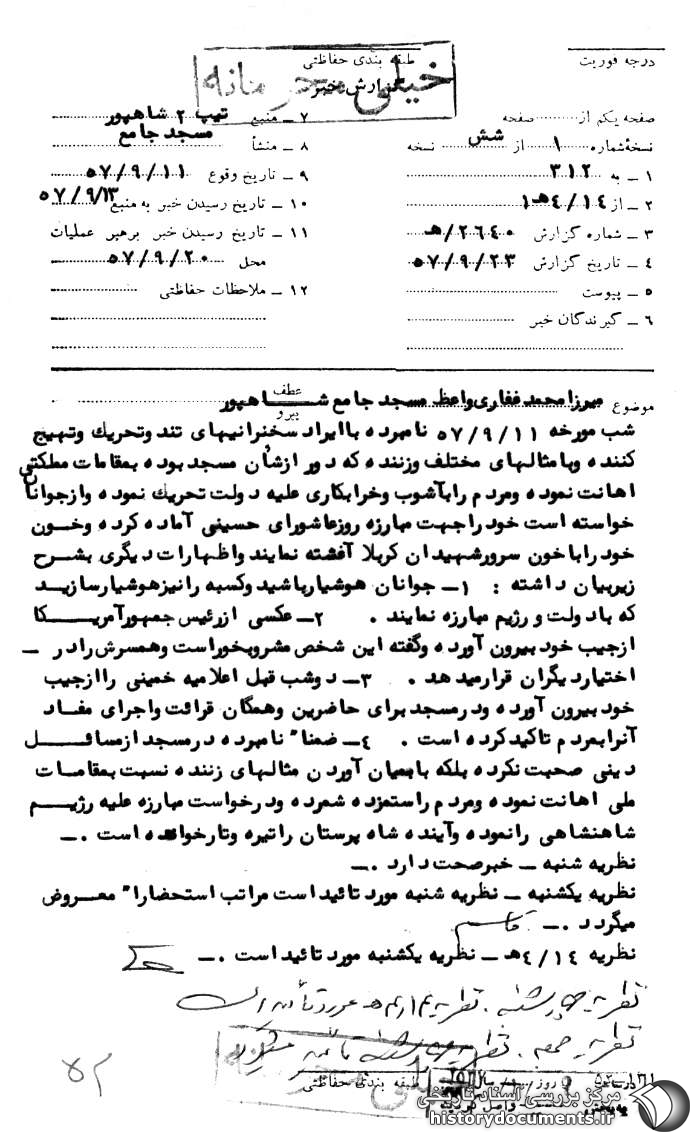 درجه فوریت
طبقه بندی حفاظتی
خیلی محرمانه
گزارش خبر
صفحه یکم از صفحه
نسخه شماره ۱ از شش نسخه
۱ – به ۳۱۲
۲ – از ۴/۱۴هـ۱
۳ – شماره گزارش ۲۶۴۰/هـ
۴ – تاریخ گزارش ۵۷/۹/۲۳
۵ – پیوست
۶ – گیرندگان خبر
۷ – منبع تیپ ۲ شاهپور
۸ – منشأ مسجد جامع
۹ – تاریخ وقوع ۵۷/۹/۱۱
۱۰ – تاریخ رسیدن خبر به منبع ۵۷/۹/۱۳
۱۱ – تاریخ رسیدن خبر برهبر عملیات
محل ۵۷/۹/۲۰
۱۲ – ملاحظات حفاظتی
موضوع میرزا محمد غفاری واعظ مسجد جامع شاهپور
عطف
پیرو
شب مورخه ۵۷/۹/۱۱ نامبرده با ایراد سخنرانیهای تند و تحریک و تهییج
کننده و با مثالهای مختلف و زننده که دور از شأن مسجد بوده بمقامات مملکتی
اهانت نموده و مردم را بآشوب و خرابکاری علیه دولت تحریک نموده و از جوانان
خواسته است خود را جهت مبارزه روز عاشورای حسینی آماده کرده و خون
خود را با خون سرور شهیدان کربلا آغشته نمایند و اظهارات دیگری بشرح
زیر بیان داشته : ۱– جوانان هوشیار باشید و کسبه را نیز هوشیار سازید
که با دولت و رژیم مبارزه نمایند . ۲– عکسی از رئیس جمهور آمریکا
از جیب خود بیرون آورده و گفته این شخص مشروبخور است و همسرش را در –
اختیار دیگران قرار میدهد . ۳– دو شب قبل اعلامیه خمینی را از جیب
خود بیرون آورده و در مسجد برای حاضرین و همگان قرائت و اجرای مفاد
آنرا بمردم تاکید کرده است . ۴– ضمنا" نامبرده در مسجد از مسائل
دینی صحبت نکرده بلکه با بمیان آوردن مثالهای زننده نسبت بمقامات
ملی اهانت نموده و مردم را ستمزده شمرده و درخواست مبارزه علیه رژیم
شاهنشاهی را نموده و آینده شاه پرستان را تیره و تار خوانده است .–
نظریه شنبه – خبر صحت دارد .–
نظریه یکشنبه – نظریه شنبه مورد تائید است مراتب استحضارا" معروض
میگردد .– قاسم
نظریه ۴/۱۴هـ – نظریه یکشنبه مورد تائید است .–
نظریه چهارشنبه . نظریه ۴/۱۴هـ مورد تأیید است
نظریه جمعه . نظریه چهارشنبه تأیید میگردد
طبقه بندی حفاظتی
خیلی محرمانه
مرکز بررسی اسناد تاریخی
historydocuments.ir